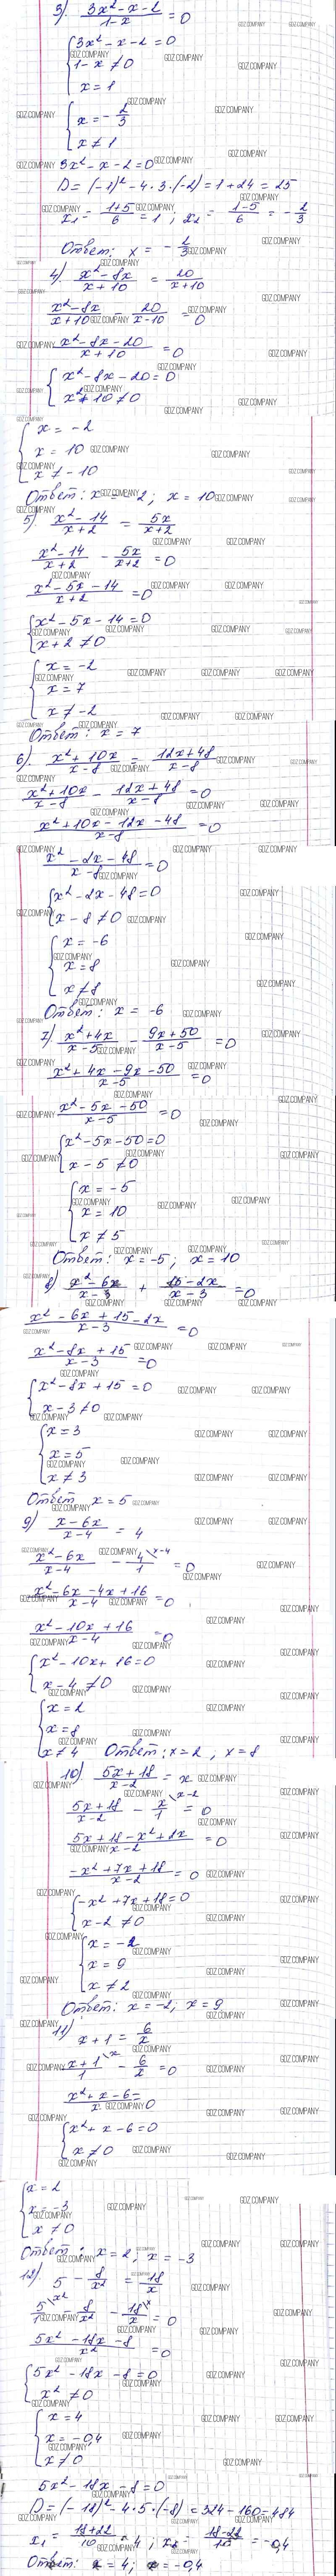 3) (3x² - x - 2)/(1-x) = 0
{ 3x² - x - 2 = 0
1 - x ≠ 0
x = 1
{ x = - 2/3
x ≠ 1
3x² - x - 2 = 0
D = (-1)² - 4·3·(-2) = 1 + 24 = 25
x₁ = (1+5)/6 = 1 ; x₂ = (1-5)/6 = - 2/3
Ответ: x = - 2/3
4) (x² - 8x)/(x + 10) = 20/(x+10)
(x² - 8x)/(x+10) - 20/(x-10) = 0
(x² - 8x - 20)/(x+10) = 0
{ x² - 8x - 20 = 0
x + 10 ≠ 0
{ x = -2
x = 10
x ≠ -10
Ответ: x = -2; x = 10
5) (x² - 14)/(x+2) = 5x/(x+2)
(x² - 14)/(x+2) - 5x/(x+2) = 0
(x² - 5x - 14)/(x+2) = 0
{ x² - 5x - 14 = 0
x + 2 ≠ 0
{ x = -2
x = 7
x ≠ -2
Ответ: x = 7
6) (x² + 10x)/(x-8) = (12x + 48)/(x-8)
(x² + 10x)/(x-8) - (12x + 48)/(x-8) = 0
(x² + 10x - 12x - 48)/(x-8) = 0
(x² - 2x - 48)/(x-8) = 0
{ x² - 2x - 48 = 0
x - 8 ≠ 0
{ x = -6
x = 8
x ≠ 8
Ответ: x = -6
7) (x² + 4x)/(x-5) - (9x + 50)/(x-5) = 0
(x² + 4x - 9x - 50)/(x-5) = 0
(x² - 5x - 50)/(x-5) = 0
{ x² - 5x - 50 = 0
x - 5 ≠ 0
{ x = -5
x = 10
x ≠ 5
Ответ: x = -5; x = 10
8) (x² - 6x)/(x-3) + (15 - 2x)/(x-3) = 0
(x² - 6x + 15 - 2x)/(x-3) = 0
(x² - 8x + 15)/(x-3) = 0
{ x² - 8x + 15 = 0
x - 3 ≠ 0
{ x = 3
x = 5
x ≠ 3
Ответ x = 5
9) (x - 6x)/(x-4) = 4
(x² - 6x)/(x-4) - 4/1 \x-4 = 0
(x² - 6x - 4x + 16)/(x-4) = 0
(x² - 10x + 16)/(x-4) = 0
{ x² - 10x + 16 = 0
x - 4 ≠ 0
{ x = 2
x = 8
x ≠ 4 Ответ: x = 2, x = 8
10) (5x + 18)/(x-2) = x
(5x + 18)/(x-2) - x/1 \x-2 = 0
(5x + 18 - x² + 2x)/(x-2) = 0
(-x² + 7x + 18)/(x-2) = 0
{ -x² + 7x + 18 = 0
x - 2 ≠ 0
{ x = -2
x = 9
x ≠ 2
Ответ: x = -2; x = 9
11) x + 1 = 6/x
(x+1)/1 \x - 6/x = 0
(x² + x - 6)/x = 0
{ x² + x - 6 = 0
x ≠ 0
{ x = 2
x = -3
x ≠ 0
Ответ: x = 2; x = -3
12) 5 - 8/x² = 18/x
5/1 \x² - 8/x² - 18/x \x = 0
(5x² - 18x - 8)/x² = 0
{ 5x² - 18x - 8 = 0
x² ≠ 0
{ x = 4
x = -0,4
x ≠ 0
5x² - 18x - 8 = 0
D = (-18)² - 4·5·(-8) = 324 - 160 = 484
x₁ = (18+22)/10 = 4 ; x₂ = (18-22)/10 = -0,4
Ответ: x = 4; x = -0,4
GDZ.COMPANY